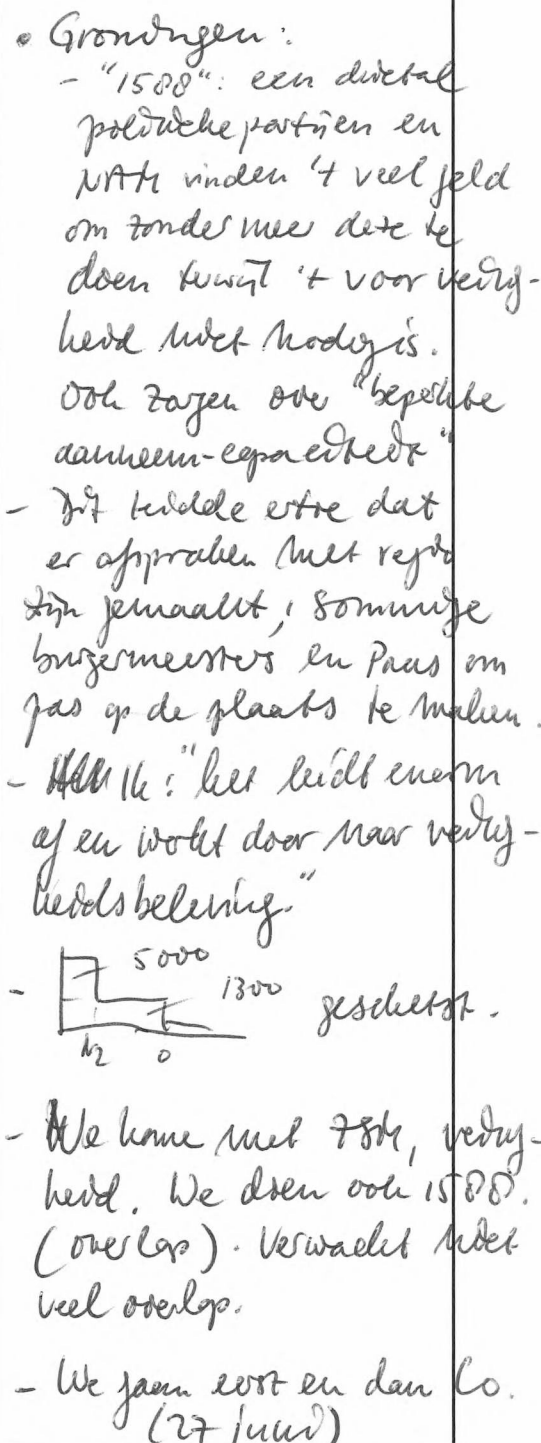 • Groningen:
- "1588": een drietal
politieke partijen en
NAM vinden 't veel geld
om zonder meer deze te
doen terwijl 't voor veilig-
heid niet nodig is.
Ook zorgen over "beperkte
aanneem-capaciteit"
- Dit leidde ertoe dat
er afspraken met regio
zijn gemaakt, sommige
burgermeesters en Paas om
pas op de plaats te maken.
- Ik: "het leidt enorm
af en werkt door naar veilig-
heidsbeleving."
- 5000
1300 geschetst.
N2 0
- We kome met , veilig-
heid. We doen ook 1588.
(overlap). Verwacht niet
veel overlap.
- We gaan eerst en dan Co.
(27 juni)